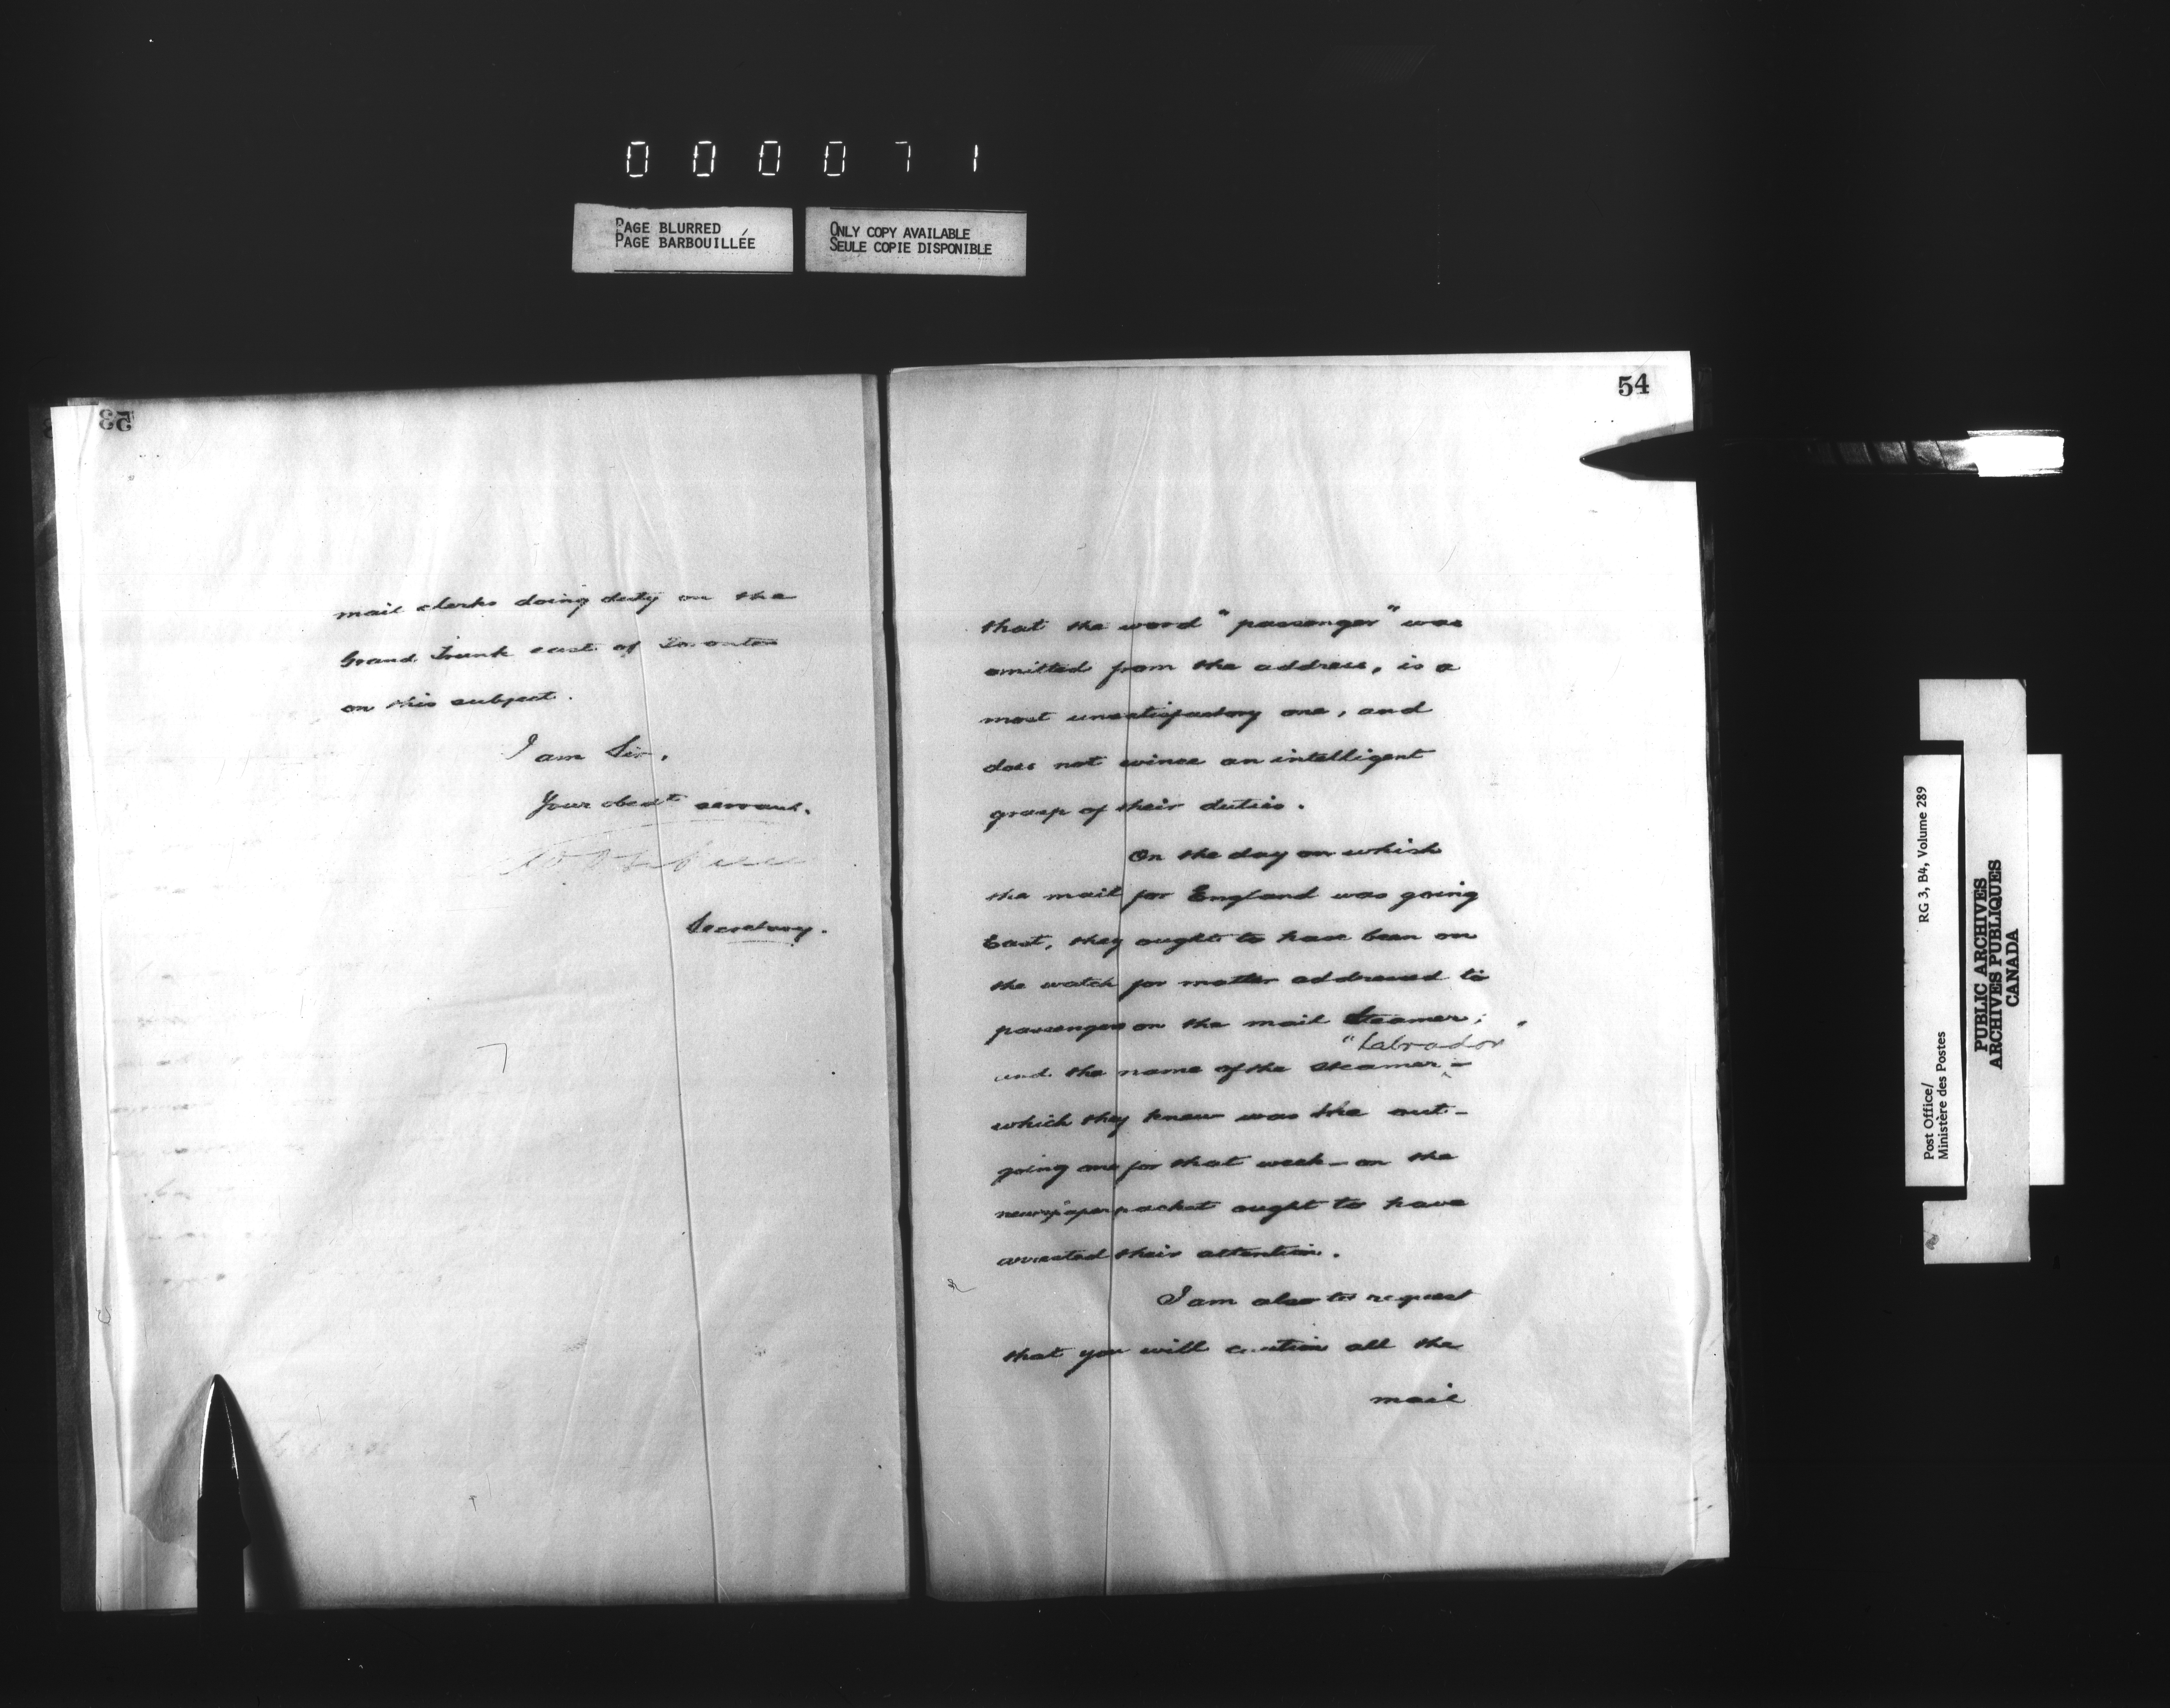 000071
PAGE BLURRED
PAGE BARBOUILLÉE
ONLY COPY AVAILABLE
SEULE COPIE DISPONIBLE
53
mail clerks doing duty on the
Grand Trunk east of Toronto
on this subject.
I am Sir,
Your obedt servant.
Secretary.
54
that the word "passenger" was
omitted from the address, is a
most unsatisfactory one, and
does not evince an intelligent
grasp of their duties.
On the day on which
the mail for England was going
East, they ought to have been on
the watch for matter addressed to
passengers on the mail Steamer;
"Labrador"
and the name of the steamer -
which they knew was the out-
going one for that week - on the
newspaper packet ought to have
arrested their attention.
I am also to request
that you will caution all the
mail
Post Office/
Ministère des Postes
RG 3, B4, Volume 289
PUBLIC ARCHIVES
ARCHIVES PUBLIQUES
CANADA